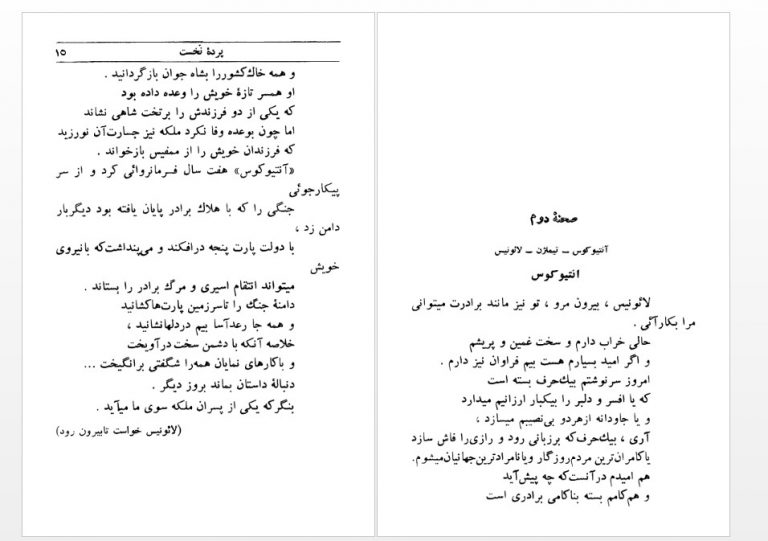 پردهٔ نخست ۱۵
و همه خاك‌کشوررا بشاه جوان بازگردانید .
او همسر تازهٔ خویش را وعده داده بود
که یکی از دو فرزندش را برتخت شاهی نشاند
اما چون بوعده وفا نکرد ملکه نیز جسارت‌آن نورزید
که فرزندان خویش را از ممفیس بازخواند .
«آنتیوکوس» هفت سال فرمانروائی کرد و از سر
پیکارجوئی
جنگی را که با هلاك برادر پایان یافته بود دیگربار
دامن زد ،
با دولت پارت پنجه درافکند و می‌پنداشت‌که بانیروی
خویش
میتواند انتقام اسیری و مرگ برادر را بستاند .
دامنهٔ جنگ را تاسرزمین پارت‌هاکشانید
و همه جا رعدآسا بیم دردلهانشانید ،
خلاصه آنکه با دشمن سخت درآویخت
و باکارهای نمایان همه‌را شگفتی برانگیخت ...
دنبالهٔ داستان بماند بروز دیگر .
بنگرکه یکی از پسران ملکه سوی ما میآید .
(لائونیس خواست تابیرون رود)
صحنهٔ دوم
آنتیوکوس ــ تیماژن ــ لائونیس
انتیوکوس
لائونیس ، بیرون مرو ، تو نیز مانند برادرت میتوانی
مرا بکارآئی .
حالی خراب دارم و سخت غمین و پریشم
و اگر امید بسیارم هست بیم فراوان نیز دارم .
امروز سرنوشتم بیك‌حرف بسته است
که یا افسر و دلبر را بیکبار ارزانیم میدارد
و یا جاودانه ازهردو بی‌نصیبم میسازد ،
آری ، بیك‌حرف‌که برزبانی رود و رازی‌را فاش سازد
یاکامران‌ترین مردم‌روزگار ویانامرادترین‌جهانیان‌میشوم.
هم امیدم درآنست‌که چه پیش‌آید
و هم‌کامم بسته بناکامی برادری است